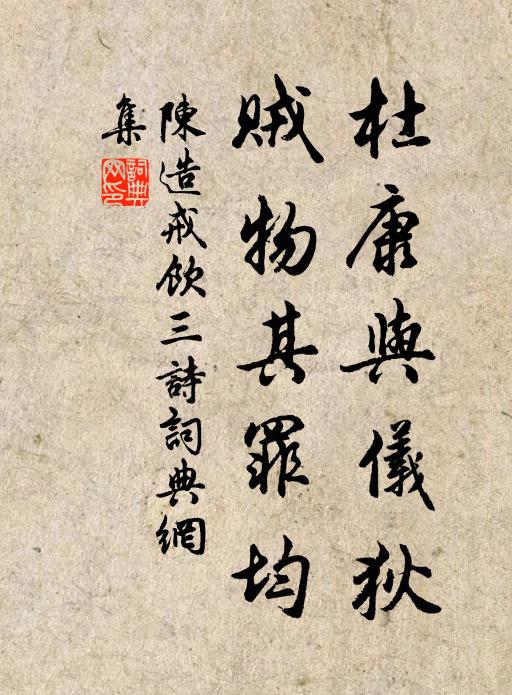 杜康與儀狄
賊物其罪均
陳造戒飲三詩詞典網
集
詞典網印